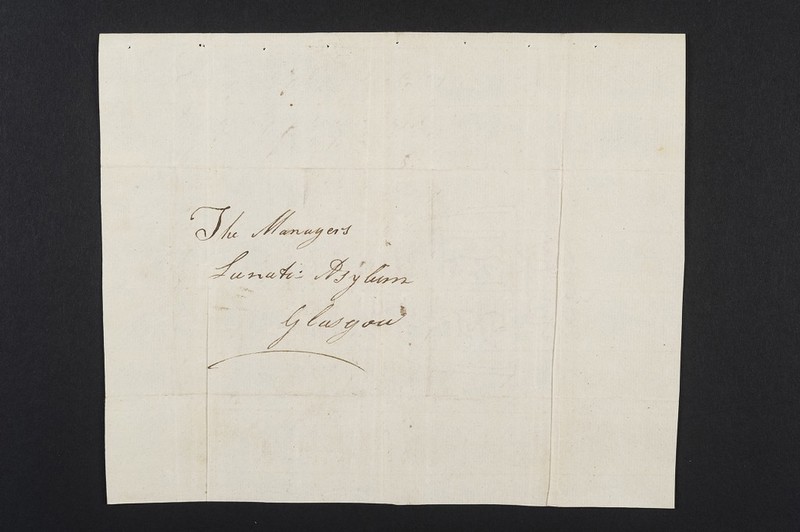 The Managers
Lunatic Asylum
Glasgow